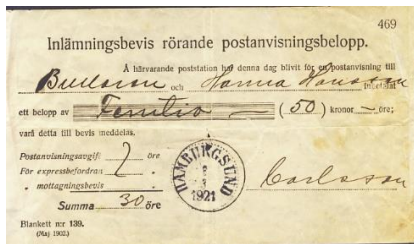 469
Inlämningsbevis rörande postanvisningsbelopp.
Å härvarande poststation har denna dag blivit för en postanvisning till
och Hanna Hansson
ett belopp av Femtio — (50) kronor — öre;
varå detta till bevis meddelas.
Postanvisningsavgift öre
För expressbefordran
" mottagningsbevis
Summa 30 öre
HAMBURGSUND
1921
Carlsson
Blankett n:r 139.
(Maj 1902.)